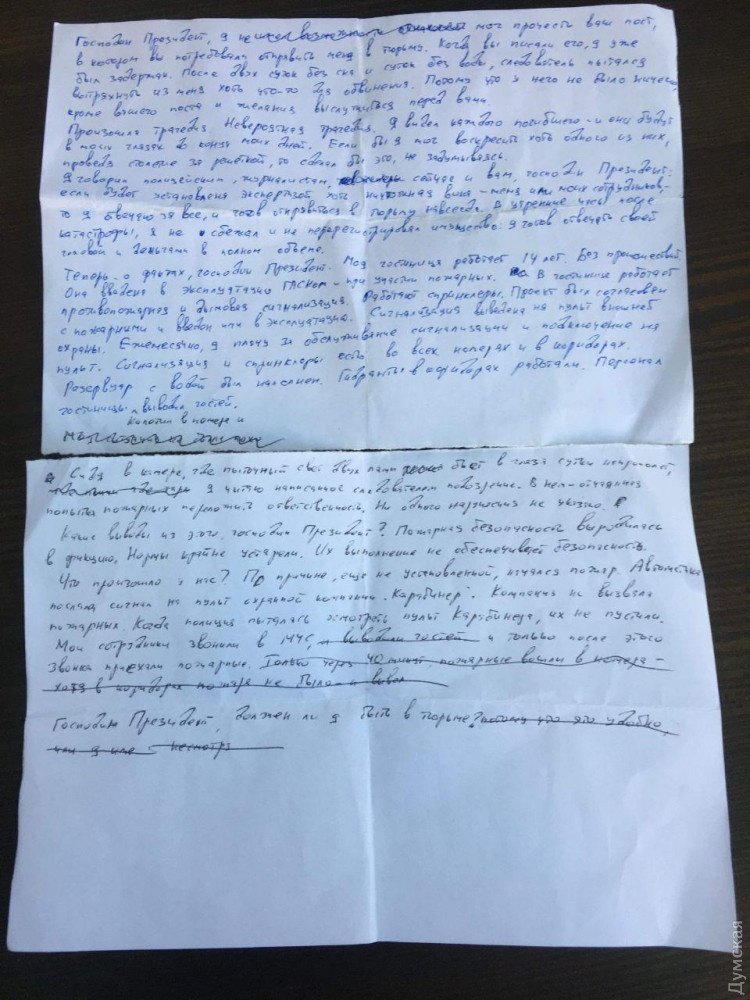 Господин Президент, я не мог прочесть ваш пост,
в котором вы потребовали отправить меня в тюрьму. Когда вы писали его, я уже
был задержан. После двух суток без сна и суток без воды, следователь пытался
вытряхнуть из меня хоть что-то для обвинения. Потому что у него не было ничего,
кроме вашего поста и желания выслужиться перед вами
Произошла трагедия. Невероятная трагедия. Я видел каждого погибшего - и они будут
в моих глазах до конца моих дней. Если бы я мог воскресить хоть одного из них,
проведя столетие за решеткой, то сделал бы это, не задумываясь.
Я говорил полицейским, журналистам, сейчас и вам, господин Президент:
если будет установлена экспертизой хоть ничтожная вина - меня или моих сотрудников-
то я отвечаю за все, и готов отправиться в тюрьму навсегда. В утренние часы после
катастрофы, я не сбежал и не перерегистрировал имущество. Я готов отвечать своей
головой и деньгами в полном объеме.
Теперь о фактах, господин Президент. Моя гостиница работает 14 лет. Без происшествий.
Она введена в эксплуатацию ГАСКом - при участии пожарных. В гостинице работает
противопожарная и дымовая сигнализация. Работают спринклеры. Проект был согласован
с пожарными и введен ими в эксплуатацию. Сигнализация выведена на пульт внешней
охраны. Ежемесячно, я плачу за обслуживание сигнализации и подключение на
пульт. Сигнализация и спринклеры есть во всех номерах и в коридорах.
Резервуар с водой был наполнен. Гидранты в коридорах работали. Персонал
гостиницы выводил гостей.
колотил в номера и
Сидя в камере, где пыточный свет двух ламп бьет в глаза сутки напролет,
я читаю написанное следователем подозрение. В нем - отчаянная
попытка пожарных переложить ответственность. Ни одного нарушения не указано.
Какие выводы из этого, господин Президент? Пожарная безопасность выродилась
в фикцию. Нормы крайне устарели. Их выполнение не обеспечивает безопасность.
Что произошло у нас? По причине, еще не установленной, начался пожар. Автоматика
послала сигнал на пульт охранной компании "Карабинер". Компания не вызвала
пожарных. Когда полиция пыталась осмотреть пульт Карабинера, их не пустили.
Мои сотрудники звонили в МЧС, и выводили гостей и только после этого
звонка приехали пожарные. Только через 40 минут пожарные вошли в номера -
хотя в коридорах пожара не было - и вывел
Господин Президент, должен ли я быть в тюрьме? потому что это удобно,
или я или несмотря
Думская